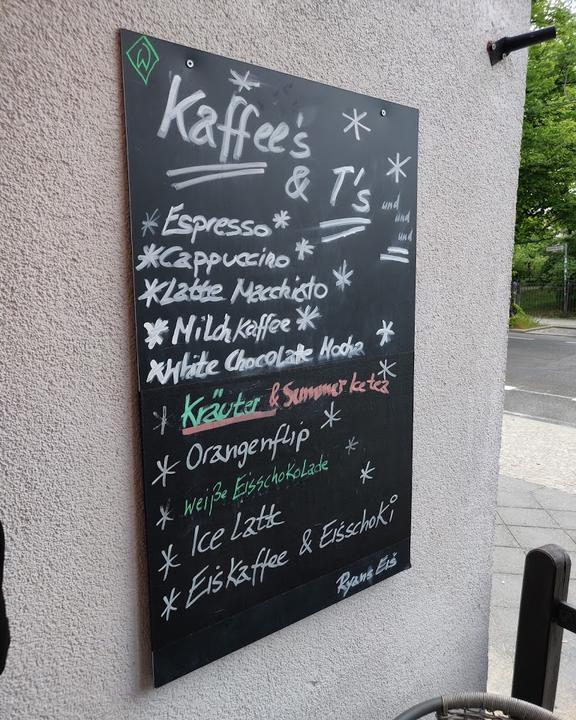 W
Kaffee's
& T's
und
und
und
Espresso
Cappuccino
Latte Macchiato
Milchkaffee
White Chocolate Mocha
Kräuter & Summer Ice tea
Orangenflip
weiße Eisschokolade
Ice Latte
Eiskaffee & Eisschoki
Ryans Eis